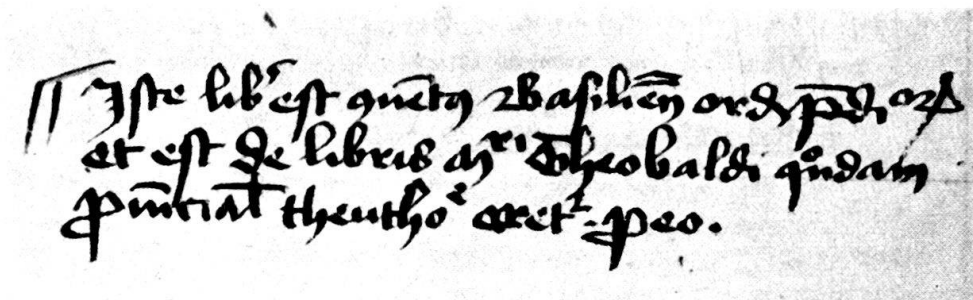 ¶ Iste lib͛ est ꝯuētꝰ Basilien̄ ordꝭ p̄di oꝝ
et est de libris mʳⁱ Theobaldi qͦndam
ꝓuīcial̄ theuthoᵉ Oretʳ ꝓ eo.